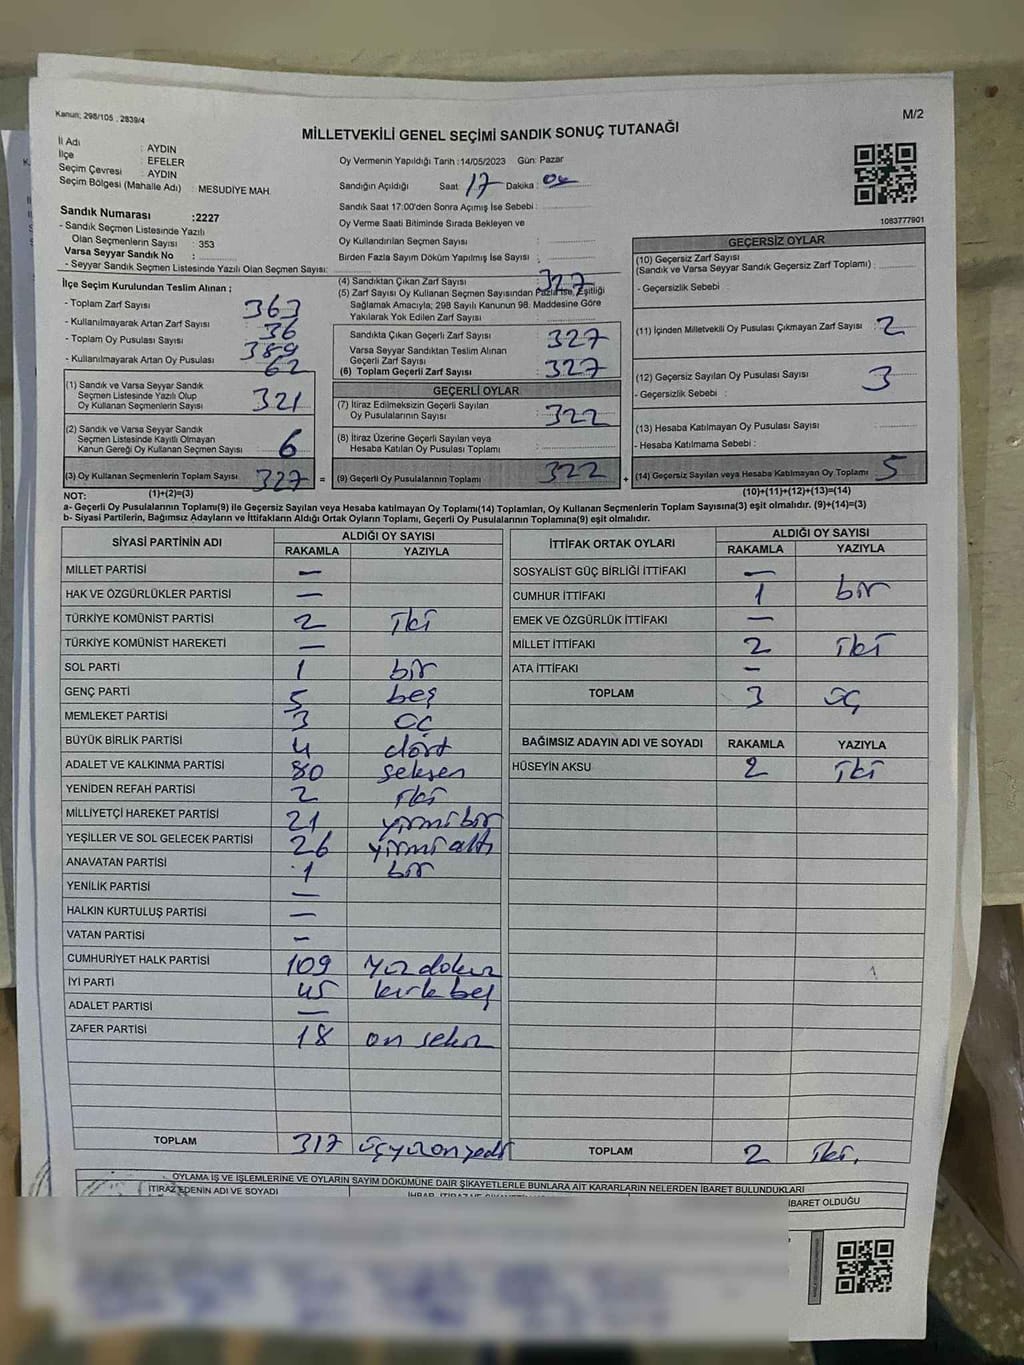 Kanun; 298/105 , 2839/4
M/2
MİLLETVEKİLİ GENEL SEÇİMİ SANDIK SONUÇ TUTANAĞI
İl Adı : AYDIN
İlçe : EFELER
Seçim Çevresi : AYDIN
Seçim Bölgesi (Mahalle Adı) : MESUDİYE MAH.
Sandık Numarası :2227
- Sandık Seçmen Listesinde Yazılı
Olan Seçmenlerin Sayısı : 353
Varsa Seyyar Sandık No :
- Seyyar Sandık Seçmen Listesinde Yazılı Olan Seçmen Sayısı:
Oy Vermenin Yapıldığı Tarih :14/05/2023 Gün: Pazar
Sandığın Açıldığı Saat: 17 Dakika :
Sandık Saat 17:00'den Sonra Açımış İse Sebebi :
Oy Verme Saati Bitiminde Sırada Bekleyen ve
Oy Kullandırılan Seçmen Sayısı :
Birden Fazla Sayım Döküm Yapılmış İse Sayısı :
1083777901
İlçe Seçim Kurulundan Teslim Alınan ;
- Toplam Zarf Sayısı 363
- Kullanılmayarak Artan Zarf Sayısı 36
- Toplam Oy Pusulası Sayısı 389
- Kullanılmayarak Artan Oy Pusulası 62
(1) Sandık ve Varsa Seyyar Sandık
Seçmen Listesinde Yazılı Olup
Oy Kullanan Seçmenlerin Sayısı 321
(2) Sandık ve Varsa Seyyar Sandık
Seçmen Listesinde Kayıtlı Olmayan
Kanun Gereği Oy Kullanan Seçmen Sayısı 6
(3) Oy Kullanan Seçmenlerin Toplam Sayısı 327 =
(1)+(2)=(3)
(4) Sandıktan Çıkan Zarf Sayısı : 327
(5) Zarf Sayısı Oy Kullanan Seçmen Sayısından Fazla İse, Eşitliği
Sağlamak Amacıyla; 298 Sayılı Kanunun 98. Maddesine Göre
Yakılarak Yok Edilen Zarf Sayısı :
Sandıkta Çıkan Geçerli Zarf Sayısı : 327
Varsa Seyyar Sandıktan Teslim Alınan
Geçerli Zarf Sayısı :
(6) Toplam Geçerli Zarf Sayısı : 327
GEÇERLİ OYLAR
(7) İtiraz Edilmeksizin Geçerli Sayılan
Oy Pusulalarının Sayısı : 322
(8) İtiraz Üzerine Geçerli Sayılan veya
Hesaba Katılan Oy Pusulası Toplamı :
(9) Geçerli Oy Pusulalarının Toplamı : 322 +
GEÇERSİZ OYLAR
(10) Geçersiz Zarf Sayısı
(Sandık ve Varsa Seyyar Sandık Geçersiz Zarf Toplamı) :
- Geçersizlik Sebebi :
(11) İçinden Milletvekili Oy Pusulası Çıkmayan Zarf Sayısı : 2
(12) Geçersiz Sayılan Oy Pusulası Sayısı : 3
- Geçersizlik Sebebi :
(13) Hesaba Katılmayan Oy Pusulası Sayısı :
- Hesaba Katılmama Sebebi :
(14) Geçersiz Sayılan veya Hesaba Katılmayan Oy Toplamı : 5
(10)+(11)+(12)+(13)=(14)
NOT:
a- Geçerli Oy Pusulalarının Toplamı(9) ile Geçersiz Sayılan veya Hesaba Katılmayan Oy Toplamı(14) Toplamları, Oy Kullanan Seçmenlerin Toplam Sayısına(3) eşit olmalıdır. (9)+(14)=(3)
b- Siyasi Partilerin, Bağımsız Adayların ve İttifakların Aldığı Ortak Oyların Toplamı, Geçerli Oy Pusulalarının Toplamına(9) eşit olmalıdır.
SİYASİ PARTİNİN ADI ALDIĞI OY SAYISI
RAKAMLA YAZIYLA
MİLLET PARTİSİ —
HAK VE ÖZGÜRLÜKLER PARTİSİ —
TÜRKİYE KOMÜNİST PARTİSİ 2 iki
TÜRKİYE KOMÜNİST HAREKETİ —
SOL PARTİ 1 bir
GENÇ PARTİ 5 beş
MEMLEKET PARTİSİ 3 üç
BÜYÜK BİRLİK PARTİSİ 4 dört
ADALET VE KALKINMA PARTİSİ 80 seksen
YENİDEN REFAH PARTİSİ 2 iki
MİLLİYETÇİ HAREKET PARTİSİ 21 yirmi bir
YEŞİLLER VE SOL GELECEK PARTİSİ 26 yirmi altı
ANAVATAN PARTİSİ 1 bir
YENİLİK PARTİSİ —
HALKIN KURTULUŞ PARTİSİ —
VATAN PARTİSİ —
CUMHURİYET HALK PARTİSİ 109 Yüz dokuz
İYİ PARTİ 45 kırk beş
ADALET PARTİSİ —
ZAFER PARTİSİ 18 on sekiz
TOPLAM 317 üçyüzonyedi
İTTİFAK ORTAK OYLARI ALDIĞI OY SAYISI
RAKAMLA YAZIYLA
SOSYALİST GÜÇ BİRLİĞİ İTTİFAKI —
CUMHUR İTTİFAKI 1 bir
EMEK VE ÖZGÜRLÜK İTTİFAKI —
MİLLET İTTİFAKI 2 iki
ATA İTTİFAKI —
TOPLAM 3 üç
BAĞIMSIZ ADAYIN ADI VE SOYADI RAKAMLA YAZIYLA
HÜSEYİN AKSU 2 iki
TOPLAM 2 iki.
OYLAMA İŞ VE İŞLEMLERİNE VE OYLARIN SAYIM DÖKÜMÜNE DAİR ŞİKAYETLERLE BUNLARA AİT KARARLARIN NELERDEN İBARET BULUNDUKLARI
İTİRAZ EDENİN ADI VE SOYADI
İBARET OLDUĞU